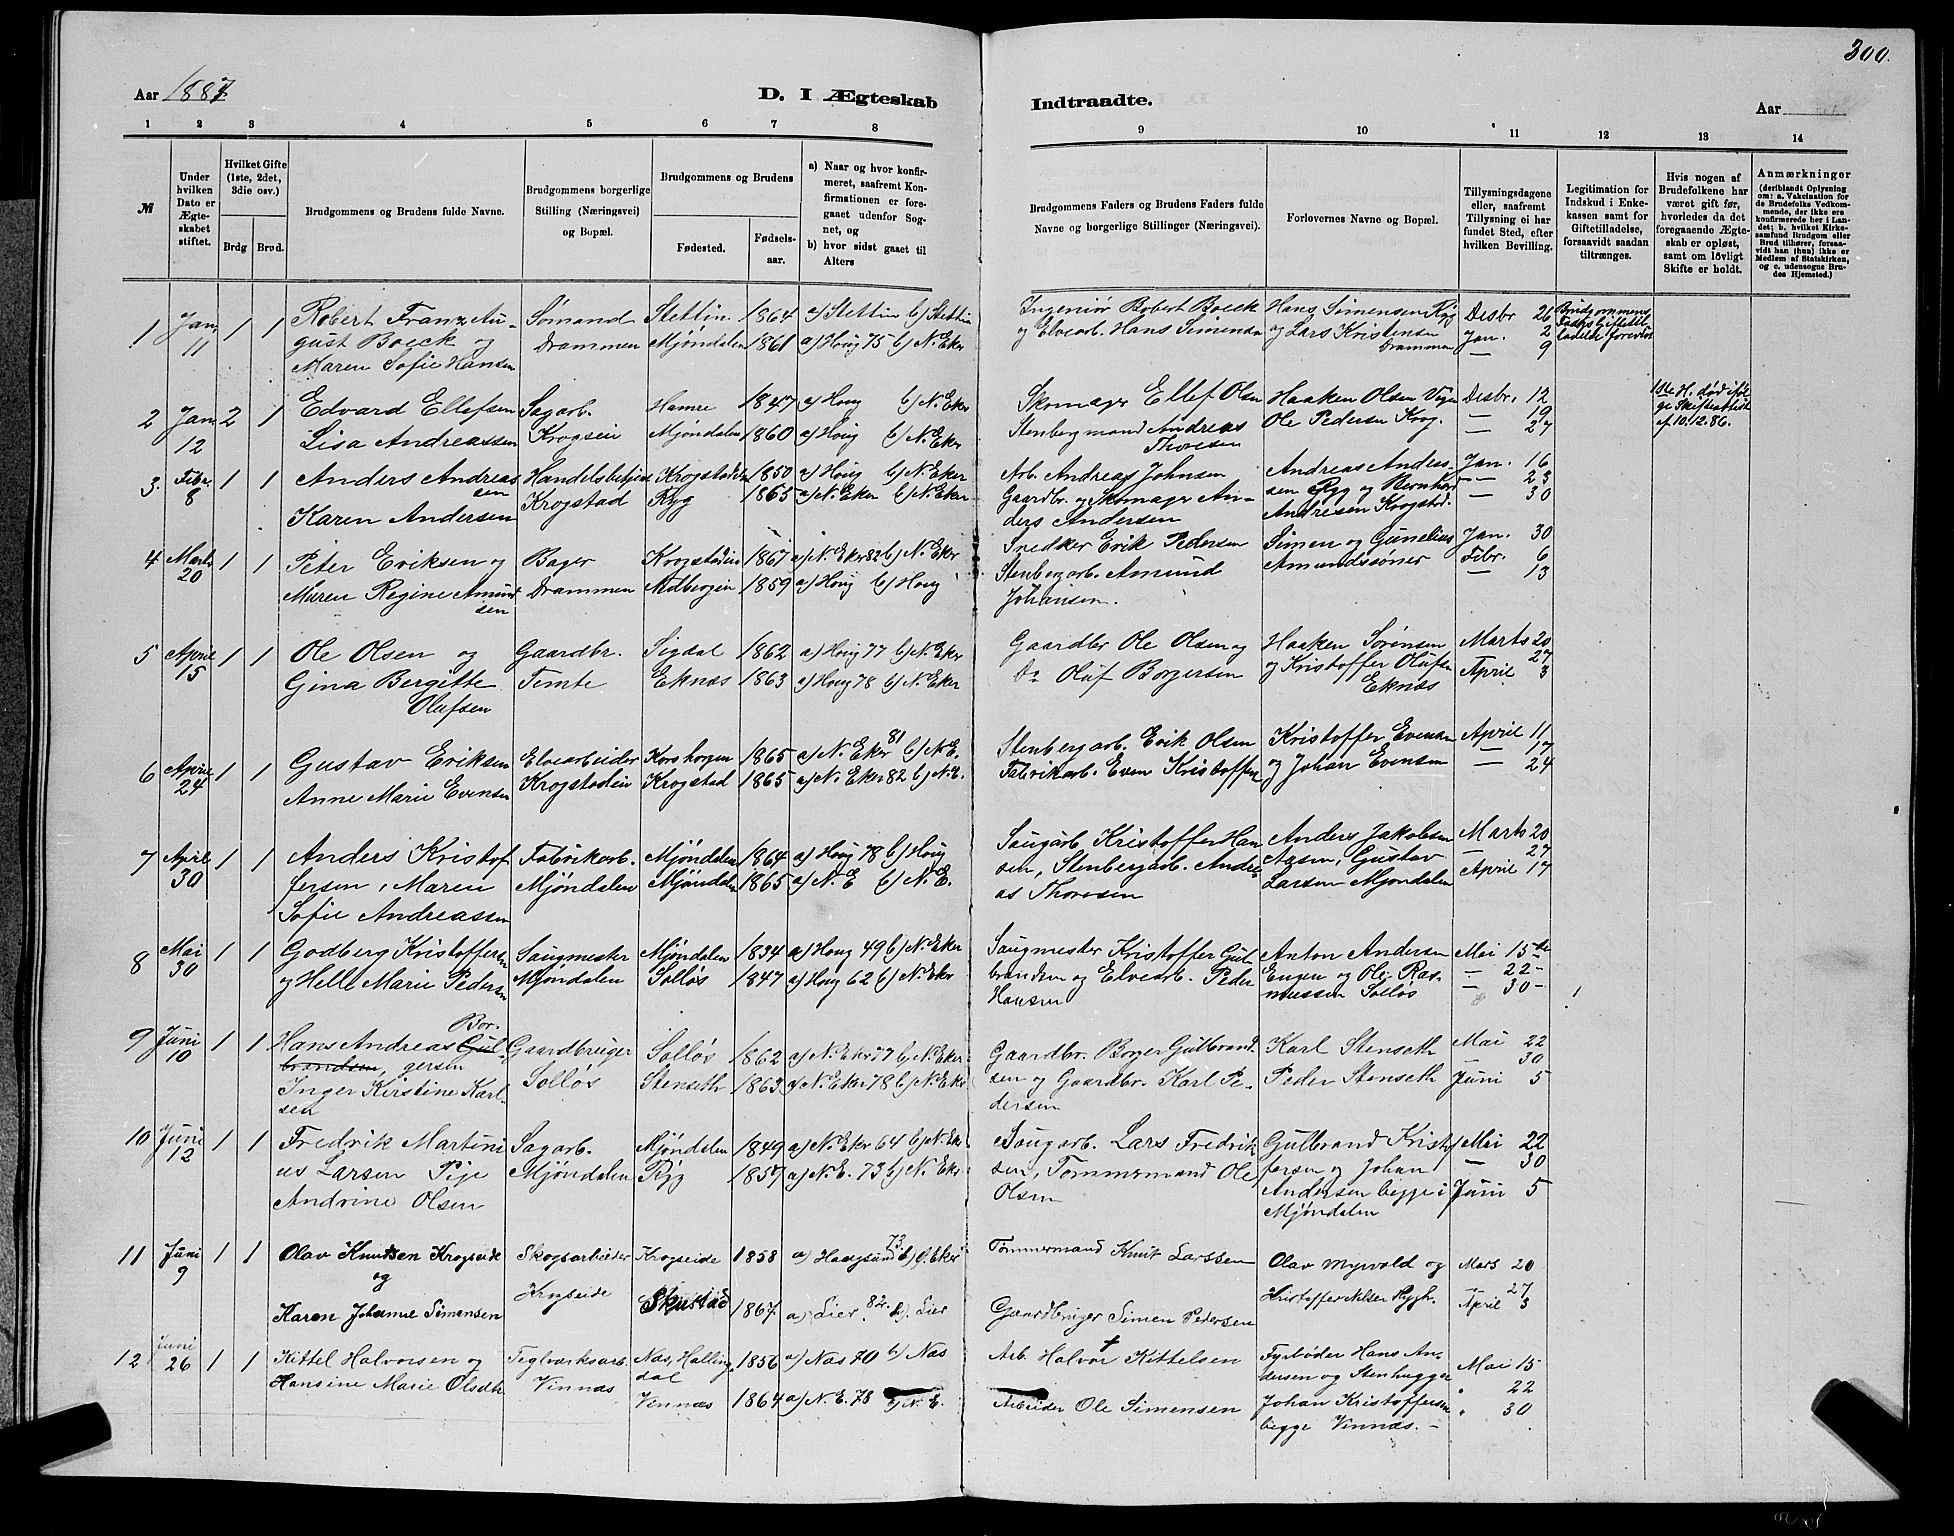 300.
Aar 1887 D. I Ægteskab Indtraadte. Aar
1 2 3 4 5 6 7 8 9 10 11 12 13 14
№
Under hvilken Dato er Ægteskabet stiftet.
Hvilket Gifte (1ste, 2det, 3die osv.)
Brdg Brud.
Brudgommens og Brudens fulde Navne.
Brudgommens borgerlige Stilling (Næringsvei) og Bopæl.
Brudgommens og Brudens
Fødested. Fødsels-aar.
a) Naar og hvor konfirmeret, saafremt Konfirmationen er foregaaet udenfor Sognet, og
b) hvor sidst gaaet til Alters
Brudgommens Faders og Brudens Faders fulde Navne og borgerlige Stillinger (Næringsvei).
Forlovernes Navne og Bopæl.
Tillysningsdagene eller, saafremt Tillysning ei har fundet Sted, efter hvilken Bevilling.
Legitimation for Indskud i Enkekassen samt for Giftetilladelse, forsaavidt saadan tiltrænges.
Hvis nogen af Brudefolkene har været gift før, hvorledes da det foregaaende Ægteskab er opløst, samt om lovligt Skifte er holdt.
Anmærkninger (deriblandt Oplysning om: a. Vakcination for de Brudefolks Vedkommende, der ikke ere konfirmerede her i Landet; b. hvilket Kirkesamfund Brudgom eller Brud tilhører, forsaavidt han (hun) ikke er Medlem af Statskirken, og c. udensogns Brudes Hjemsted.)
1 Jan 11 1 1 Robert Franz August Boeck og Sømand Stettin 1864 a) Stettin b) Stettin Ingeniør Robert Boeck Hans Simensen Ryg Desbr 26 Brudgommens
Maren Sofie Hansen Drammen Mjøndalen 1861 a) Houg 75 b) N. Eker og Elvearb. Hans Simensen og Lars Kristensen Drammen Jan. 2 — 9
2 Jan 12 2 1 Edvard Ellefsen Sagarb. Hamre 1847 a) Houg b) N. Eker Skomager Ellef Olsen Haaken Olsen Desbr. 12 1ste H. død
Lisa Andreassen Krogseie Mjøndalen 1860 a) Houg b) N. Eker Stenbergmand Andreas Thoresen Ole Pedersen Krog. 19 — 27 af 10.12.86.
3. Febr 8 1 1 Anders Andreassen Handelsbetjent Krogstadeie 1850 a) Houg b) N. Eker Arb. Andreas Johnsen Andreas Andersen Ryg og Bernhard Jan. 16 — 23
Karen Andersen Krogstad Ryg 1865 a) N. Eker b) N. Eker Gaardbr. og Skomager Anders Andersen Andresen Krogstad. — 30
4 Marts 20 1 1 Peter Eriksen og Bager Krogstadeie 1867 a) N. Eker 82 b) N. Eker Snedker Erik Pedersen Simen og Gunelius Jan. 30
Maren Regine Amundsen Drammen 1859 a) Houg b) Houg Stenbergarb. Amund Johansen. Amundssøner Febr. 6 — 13
5 April 15 1 1 Ole Olsen og Gaardbr. Sigdal 1862 a) Houg 77 b) N. Eker Gaardbr Ole Olsen og Haaken Sørensen Marts 20
Gina Bergitte Olafsen Temte Eknæs 1863 a) Houg 78 b) N. Eker Do Oluf Borgersen og Kristoffer Olufsen Eknæs 27 April 3
6 April 24 1 1 Gustav Eriksen Elvearbeider Korshorgen 1865 a) N. Eker 81 b) N. E. Stenbergarb. Erik Olsen Kristoffer Evensen April 11
Anne Marie Evensen Krogstadeie Krogstad 1865 a) N. Eker 82 b) N. E. Fabrikarb. Even Kristoffersen og Johan Evensen — 17 — 24
7 April 30 1 1 Anders Kristoffersen, Maren Fabrikarb. Mjøndalen 1864 a) Houg 78 b) Houg Saugarb. Kristoffer Hansen, Stenbergarb. Andreas Thoresen Anders Jakobsen Marts 20
Sofie Andreassen Mjøndalen Mjøndalen 1865 a) N. E b) N. E. Aasen, Gustav Larsen Mjøndalen — 27 April 17
8 Mai 30 1 1 Godberg Kristoffersen Saugmester Mjøndalen 1834 a) Houg 49 b) N. Eker Saugmester Kristoffer Gulbrandsen og Elvearb. Peder Hansen Anton Andersen Mai 15de
og Helle Marie Pedersen Mjøndalen Solløs 1847 a) Houg 62 b) N. Eker Engen og Ole Rasmussen Solløs — 22 — — 30 —
9 Juni 10 1 1 Hans Andreas Gulbrandsen, Borgersen Gaardbruger Solløs 1862 a) N. Eker 77 b) N. Eker Gaardbr. Borger Gulbrandsen og Gaardbr. Karl Pedersen Karl Stenseth Mai 22
Inger Kirstine Karlsen Solløs Stenseth 1863 a) N. Eker 78 b) N. Eker Peder Stenseth 30 Juni 5
10 Juni 12 1 1 Fredrik Martinius Larsen Pije Sagarb. Mjøndalen 1849 a) N. Eker 64 b) N. Eker Saugarb. Lars Fredriksen, Tømmermand Ole Olsen Gulbrand Kristoffersen og Johan Mai 22
Andrine Olsen Mjøndalen Ryg 1857 a) N. E. 73 b) N. Eker Andersen begge i Mjøndalen — 30 Juni 5
11 Juni 9 1 1 Olav Knutsen Krogseide og Skogsarbeider Krogseide 1858 a) Haugsund 73 b) Ø. Eker Tømmermand Knut Larssen Olav Myrvold og Mars 20
Karen Johanne Simensen Krogseide Skustad 1867 a) Lier 82. b) Lier Gaardbruger Simen Pedersen Kristoffer Nilsen Rygh. 27 April 3
12 Juni 26 1 1 Kittel Halvorsen og Teglværksarb. Næs, Hallingdal 1856 a) Næs 70 b) Næs Arb. Halvor † Kittelsen Fyrbøder Hans Andersen og Stenhugger Mai 15
Hansine Marie Olsdtr Vinnæs Vinnæs 1864 a) N. E. 78 b) N. E. Arbeider Ole Simensen Johan Kristoffersen begge Vinnæs. — " 22 " 30